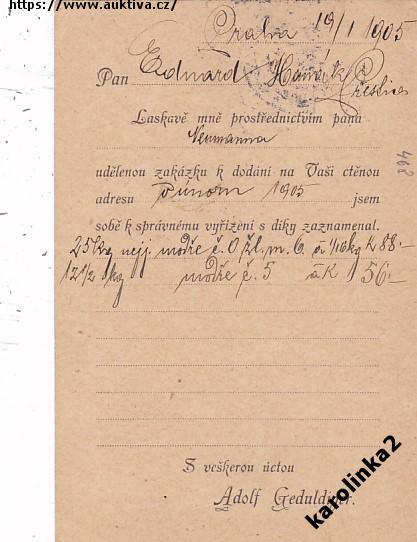 https://www.auktiva.cz/
Praha 19/1 1905
Pan Eduard
Laskavě mně prostřednictvím pana
Neumanna
udělenou zakázku k dodání na Vaši ctěnou
adresu v únoru 1905 jsem
sobě k správnému vyřízení s díky zaznamenal.
25 kg nejj. modře č. 0 žl. m. 6. á 1/10 kg K 88.-
12 1/2 kg modře č. 5 á K 1 56.-
468
S veškerou úctou
Adolf Geduldiger.
karolinka2